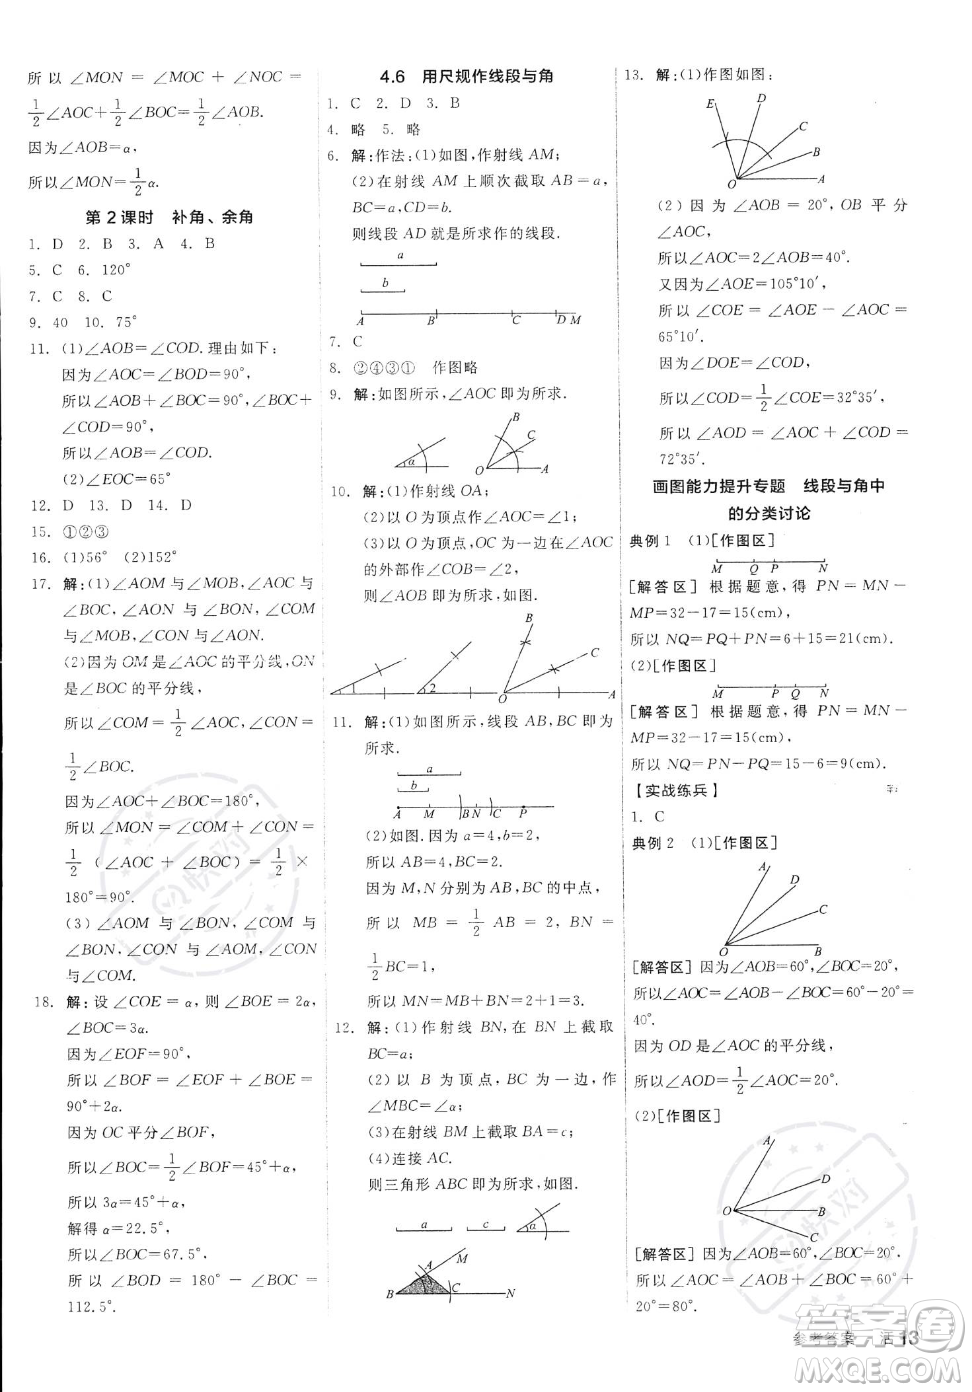 所以∠MON=∠MOC+∠NOC=
1/2∠AOC+1/2∠BOC=1/2∠AOB.
因为∠AOB=α,
所以∠MON=1/2α.
第2课时 补角、余角
1. D 2. B 3. A 4. B
5. C 6. 120°
7. C 8. C
9. 40 10. 75°
11. (1)∠AOB=∠COD.理由如下:
因为∠AOC=∠BOD=90°,
所以∠AOB+∠BOC=∠BOC+
∠COD=90°,
所以∠AOB=∠COD.
(2)∠EOC=65°
12. D 13. D 14. D
15. ①②③
16. (1)56° (2)152°
17. 解:(1)∠AOM与∠MOB,∠AOC与
∠BOC,∠AON与∠BON,∠COM
与∠MOB,∠CON与∠AON.
(2)因为OM是∠AOC的平分线,ON
是∠BOC的平分线,
所以∠COM=1/2∠AOC,∠CON=
1/2∠BOC.
因为∠AOC+∠BOC=180°,
所以∠MON=∠COM+∠CON=
1/2(∠AOC+∠BOC)=1/2×
180°=90°.
(3)∠AOM与∠CON,∠AOM与
∠BON,∠CON与∠COM,∠BON与
∠COM.
18. 解:设∠COE=α,则∠BOE=2α,
∠BOC=3α.
因为∠EOF=90°,
所以∠BOF=∠EOF+∠BOE=
90°+2α.
因为OC平分∠BOF,
所以∠BOC=1/2∠BOF=45°+α,
所以3α=45°+α,
解得α=22.5°,
所以∠BOC=67.5°,
所以∠BOD=180°-∠BOC=
112.5°.
4.6 用尺规作线段与角
1. C 2. D 3. B
4. 略 5. 略
6. 解:作法:(1)如图,作射线AM;
(2)在射线AM上顺次截取AB=a,
BC=a,CD=b.
则线段AD就是所求作的线段.
a
b
A B C D M
7. C
8. ②④③① 作图略
9. 解:如图所示,∠AOC即为所求.
α
B C O A
10. 解:(1)作射线OA;
(2)以O为顶点作∠AOC=∠1;
(3)以O为顶点,OC为一边在∠AOC
的外部作∠COB=∠2,
则∠AOB即为所求,如图.
B
C
1 2 O A
11. 解:(1)如图所示,线段AB,BC即为
所求.
a
b
A M B N C P
(2)如图.因为a=4,b=2,
所以AB=4,BC=2.
因为M,N分别为AB,BC的中点,
所以MB=1/2AB=2,BN=
1/2BC=1,
所以MN=MB+BN=2+1=3.
12. 解:(1)作射线BN,在BN上截取
BC=a;
(2)以B为顶点,BN为一边,作
∠MBC=∠α;
(3)在射线BM上截取BA=c;
(4)连接AC.
则三角形ABC即为所求,如图.
a c α
A M
B C N
13. 解:(1)作图如图:
E D
C
B
O A
(2)因为∠AOB=20°,OB平分
∠AOC,
所以∠AOC=2∠AOB=40°.
又因为∠AOE=105°10′,
所以∠COE=∠AOE-∠AOC=
65°10′.
因为∠COD=∠DOE,
所以∠COD=1/2∠COE=32°35′,
所以∠AOD=∠AOC+∠COD=
72°35′.
画图能力提升专题 线段与角中
的分类讨论
典例1 (1)[作图区]
M Q P N
[解答区] 根据题意,得PN=MN-
MP=32-17=15(cm),
所以NQ=PQ+PN=6+15=21(cm).
(2)[作图区]
M P Q N
[解答区] 根据题意,得PN=MN-
MP=32-17=15(cm),
所以NQ=PN-PQ=15-6=9(cm).
【实战练兵】
1. C
典例2 (1)[作图区]
A
D
C
O B
[解答区] 因为∠AOB=60°,∠BOC=20°,
所以∠AOC=∠AOB-∠BOC=60°-20°=
40°.
因为OD是∠AOC的平分线,
所以∠AOD=1/2∠AOC=20°.
(2)[作图区]
A
D
O B
C
[解答区] 因为∠AOB=60°,∠BOC=20°.
所以∠AOC=∠AOB+∠BOC=60°+
20°=80°.
参考答案 活 13
答案圈
MXQE.COM
快对